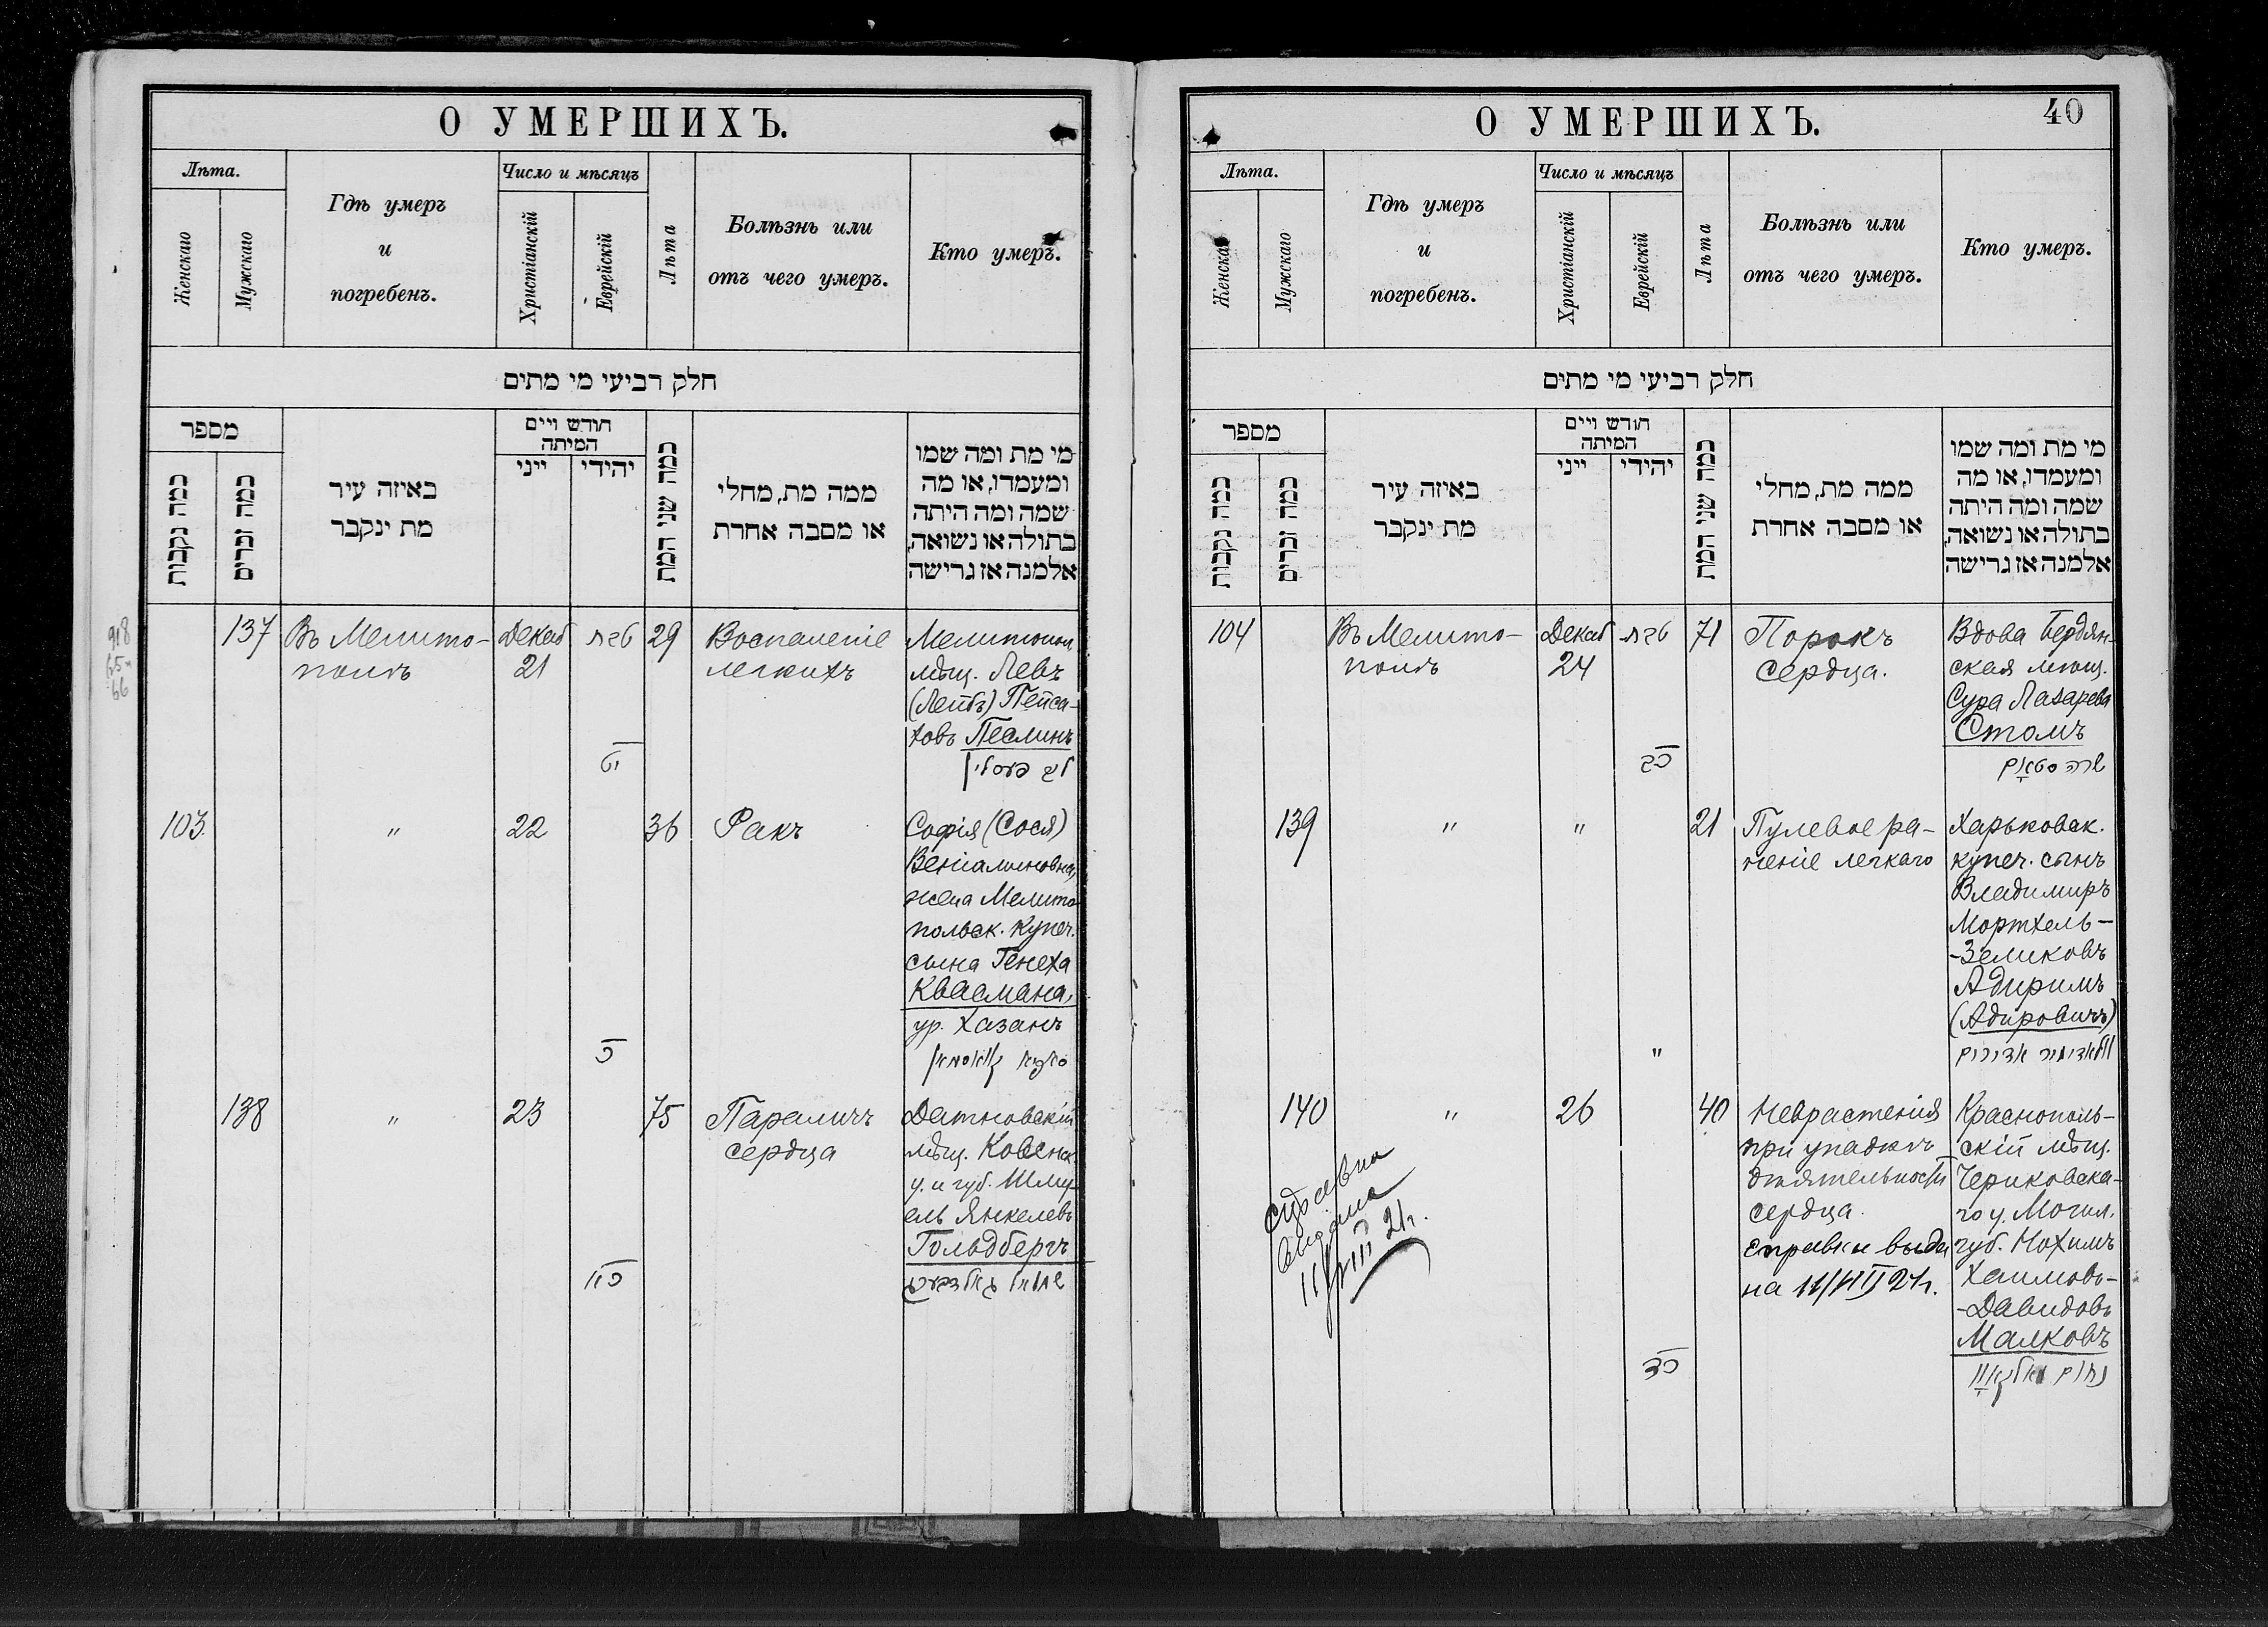 О УМЕРШИХЪ.
Лѣта.
Женскаго
Мужскаго
Гдѣ умеръ
и
погребенъ.
Число и мѣсяцъ
Христіанскій
Еврейскій
Лѣта
Болѣзнь или
отъ чего умеръ.
Кто умеръ.
חלק רביעי מי מתים
מספר
כמה נקבות
כמה זכרים
באיזה עיר
מת ינקבר
חודש ויים
המיתה
ייני
יהודי
כמה שני המת
ממה מת, מחלי
או מסבה אחרת
מי מת ומה שמו
ומעמדו, או מה
שמה ומה היתה
בתולה או נשואה,
אלמנה אז גרישה
137
Въ Мелито-
полѣ
Декаб
21
טבת
יט
29
Воспаленіе
легкихъ
Мелитопол.
мѣщ. Левъ
(Лейбъ) Пейса-
ховъ Песлинъ
לב פעסלין
103
"
22
כ
36
Ракъ
Софія (Сося)
Веніаминовна,
жена Мелито-
польск. купеч.
сына Генеха
Квасмана,
ур. Хазанъ
קוואסמאן
138
"
23
כא
75
Параличъ
сердца
Датновскій
мѣщ. Ковенск.
у. и губ. Шму-
ель Янкелевъ
Гольдбергъ
שמואל גאלדבערג
О УМЕРШИХЪ.
40
Лѣта.
Женскаго
Мужскаго
Гдѣ умеръ
и
погребенъ.
Число и мѣсяцъ
Христіанскій
Еврейскій
Лѣта
Болѣзнь или
отъ чего умеръ.
Кто умеръ.
חלק רביעי מי מתים
מספר
כמה נקבות
כמה זכרים
באיזה עיר
מת ינקבר
חודש ויים
המיתה
ייני
יהודי
כמה שני המת
ממה מת, מחלי
או מסבה אחרת
מי מת ומה שמו
ומעמדו, או מה
שמה ומה היתה
בתולה או נשואה,
אלמנה אז גרישה
104
Въ Мелито-
полѣ
Декаб
24
טבת
כב
71
Порокъ
сердца.
Вдова Бердян-
ская мѣщ.
Сура Лазарева
Столъ
שרה
139
"
"
"
21
Пулевое ра-
неніе легкаго
Харьковск.
купеч. сынъ
Владимиръ
Мортхель-
-Зеликовъ
Адиримъ
(Адировичъ)
וולאדימיר אדירים
140
"
26
כד
40
Неврастенія
при упадкѣ
дѣятельности
сердца.
справки выда
на 11/VIII 21г.
Краснополь-
скій мѣщ.
Чериковска-
го у. Могил.
губ. Нохимъ
Хаимовъ-
-Давидовъ
Малковъ
נחום מאלקאוו
справка
выдана
11/VIII 21г.